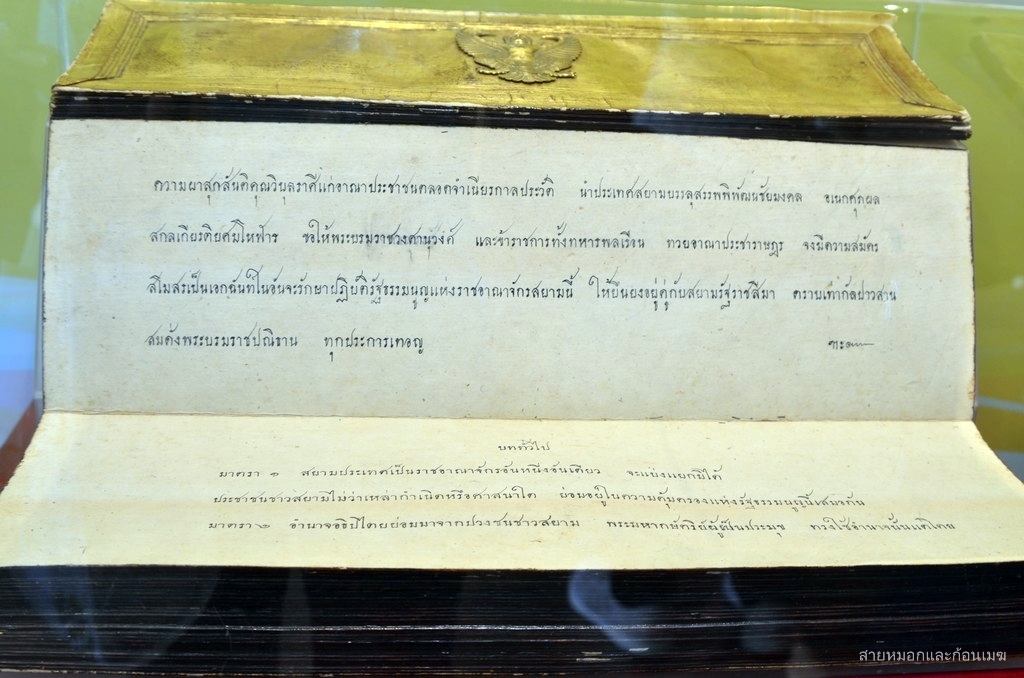 ความผาสุกสันติคุณวิบุลราศีแก่อาณาประชาชนตลอดจำเนียรกาลประวัติ นำประเทศสยามบรรลุสรรพพิพัฒนชัยมงคล อเนกศุภผล
สกลเกียรติยศมโหฬาร ขอให้พระบรมราชวงศานุวงศ์ และข้าราชการทั้งทหารพลเรือน ทวยอาณาประชาราษฎร จงมีความสมัคร
สโมสรเป็นเอกฉันท์ในอันจะรักษาปฏิบัติรัฐธรรมนูญแห่งราชอาณาจักรสยามนี้ ให้ยืนยงอยู่คู่กับสยามรัฐราชสีมา ตราบเท่ากัลปาวสาน
สมดั่งพระบรมราชปณิธาน ทุกประการเทอญ
บททั่วไป
มาตรา ๑ สยามประเทศเป็นราชอาณาจักรอันหนึ่งอันเดียว จะแบ่งแยกมิได้
ประชาชนชาวสยามไม่ว่าเหล่ากำเนิดหรือศาสนาใด ย่อมอยู่ในความคุ้มครองแห่งรัฐธรรมนูญนี้เสมอกัน
มาตรา ๒ อำนาจอธิปไตยย่อมมาจากปวงชนชาวสยาม พระมหากษัตริย์ผู้เป็นประมุข ทรงใช้อำนาจนั้นแต่โดย
สายหมอกและก้อนเมฆ